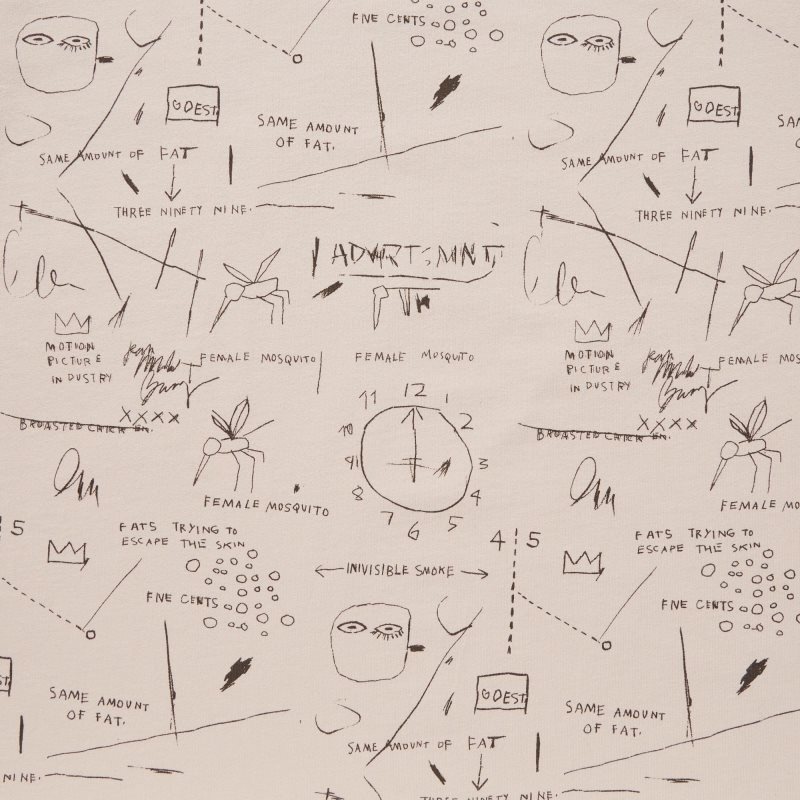 FIVE CENTS
GDEST
GDEST
SAME AMOUNT
OF FAT.
SAM
OF
SAME AMOUNT OF FAT
SAME AMOUNT OF FAT
THREE NINETY NINE.
THREE NINETY NINE.
ADVRTSMNT
MOTION
PICTURE
IN DUSTRY
FEMALE MOSQUITO
FEMALE MOSQUITO
MOTION
PICTURE
IN DUSTRY
FEMALE MOS
XXXX
BROASTED CHICKEN.
XXXX
BROASTED CHICKEN.
11 12 1
10 2
9 3
8 4
7 6 5
FEMALE MOSQUITO
FEMALE MO
5
FATS TRYING TO
ESCAPE THE SKIN
4 5
FATS TRYING TO
ESCAPE THE SKIN
INIVISIBLE SMOKE
FIVE CENTS
FIVE CENTS
ST
GDEST
SAME AMOUNT
OF FAT.
SAME AMOUNT
OF FAT.
SAME AMOUNT OF FAT
NINE.
THREE NINETY NINE.